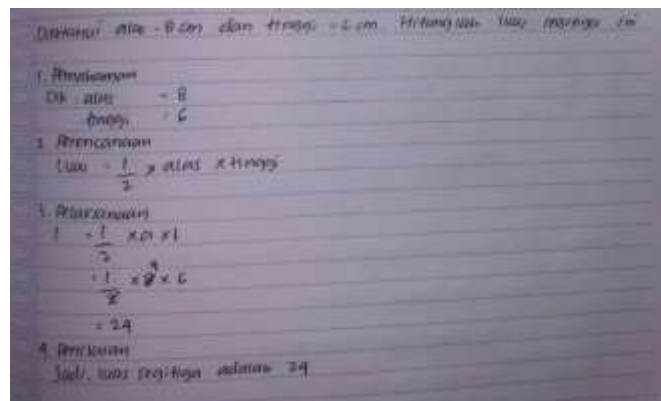 Diketahui alas = 8 cm dan tinggi = 6 cm. Hitunglah luas segitiga ini
1. Pemahaman
Dik alas = 8
tinggi = 6
2. Perencanaan
Luas = 1/2 x alas x tinggi
3. Pelaksanaan
L = 1/2 x a x t
= 1/2 x 8 4 x 6
= 24
4. Penilaian
Jadi, luas segitiga adalah 24